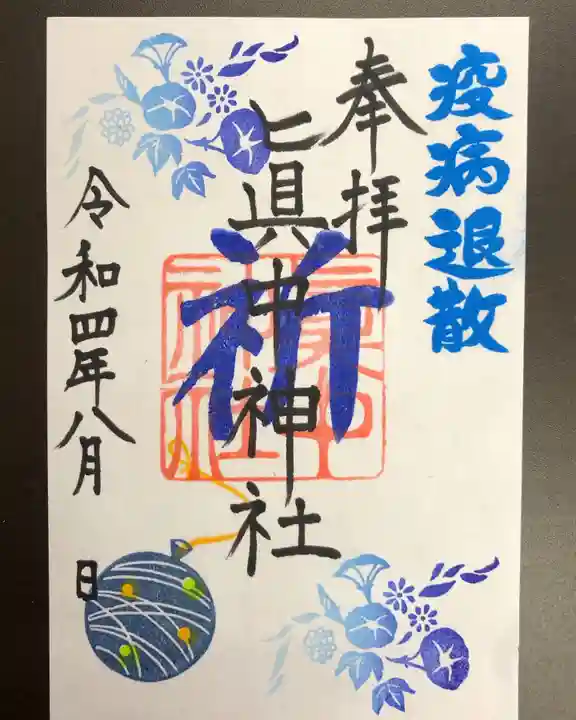 疫病退散
奉拝
眞中神社
祈
令和四年八月 日